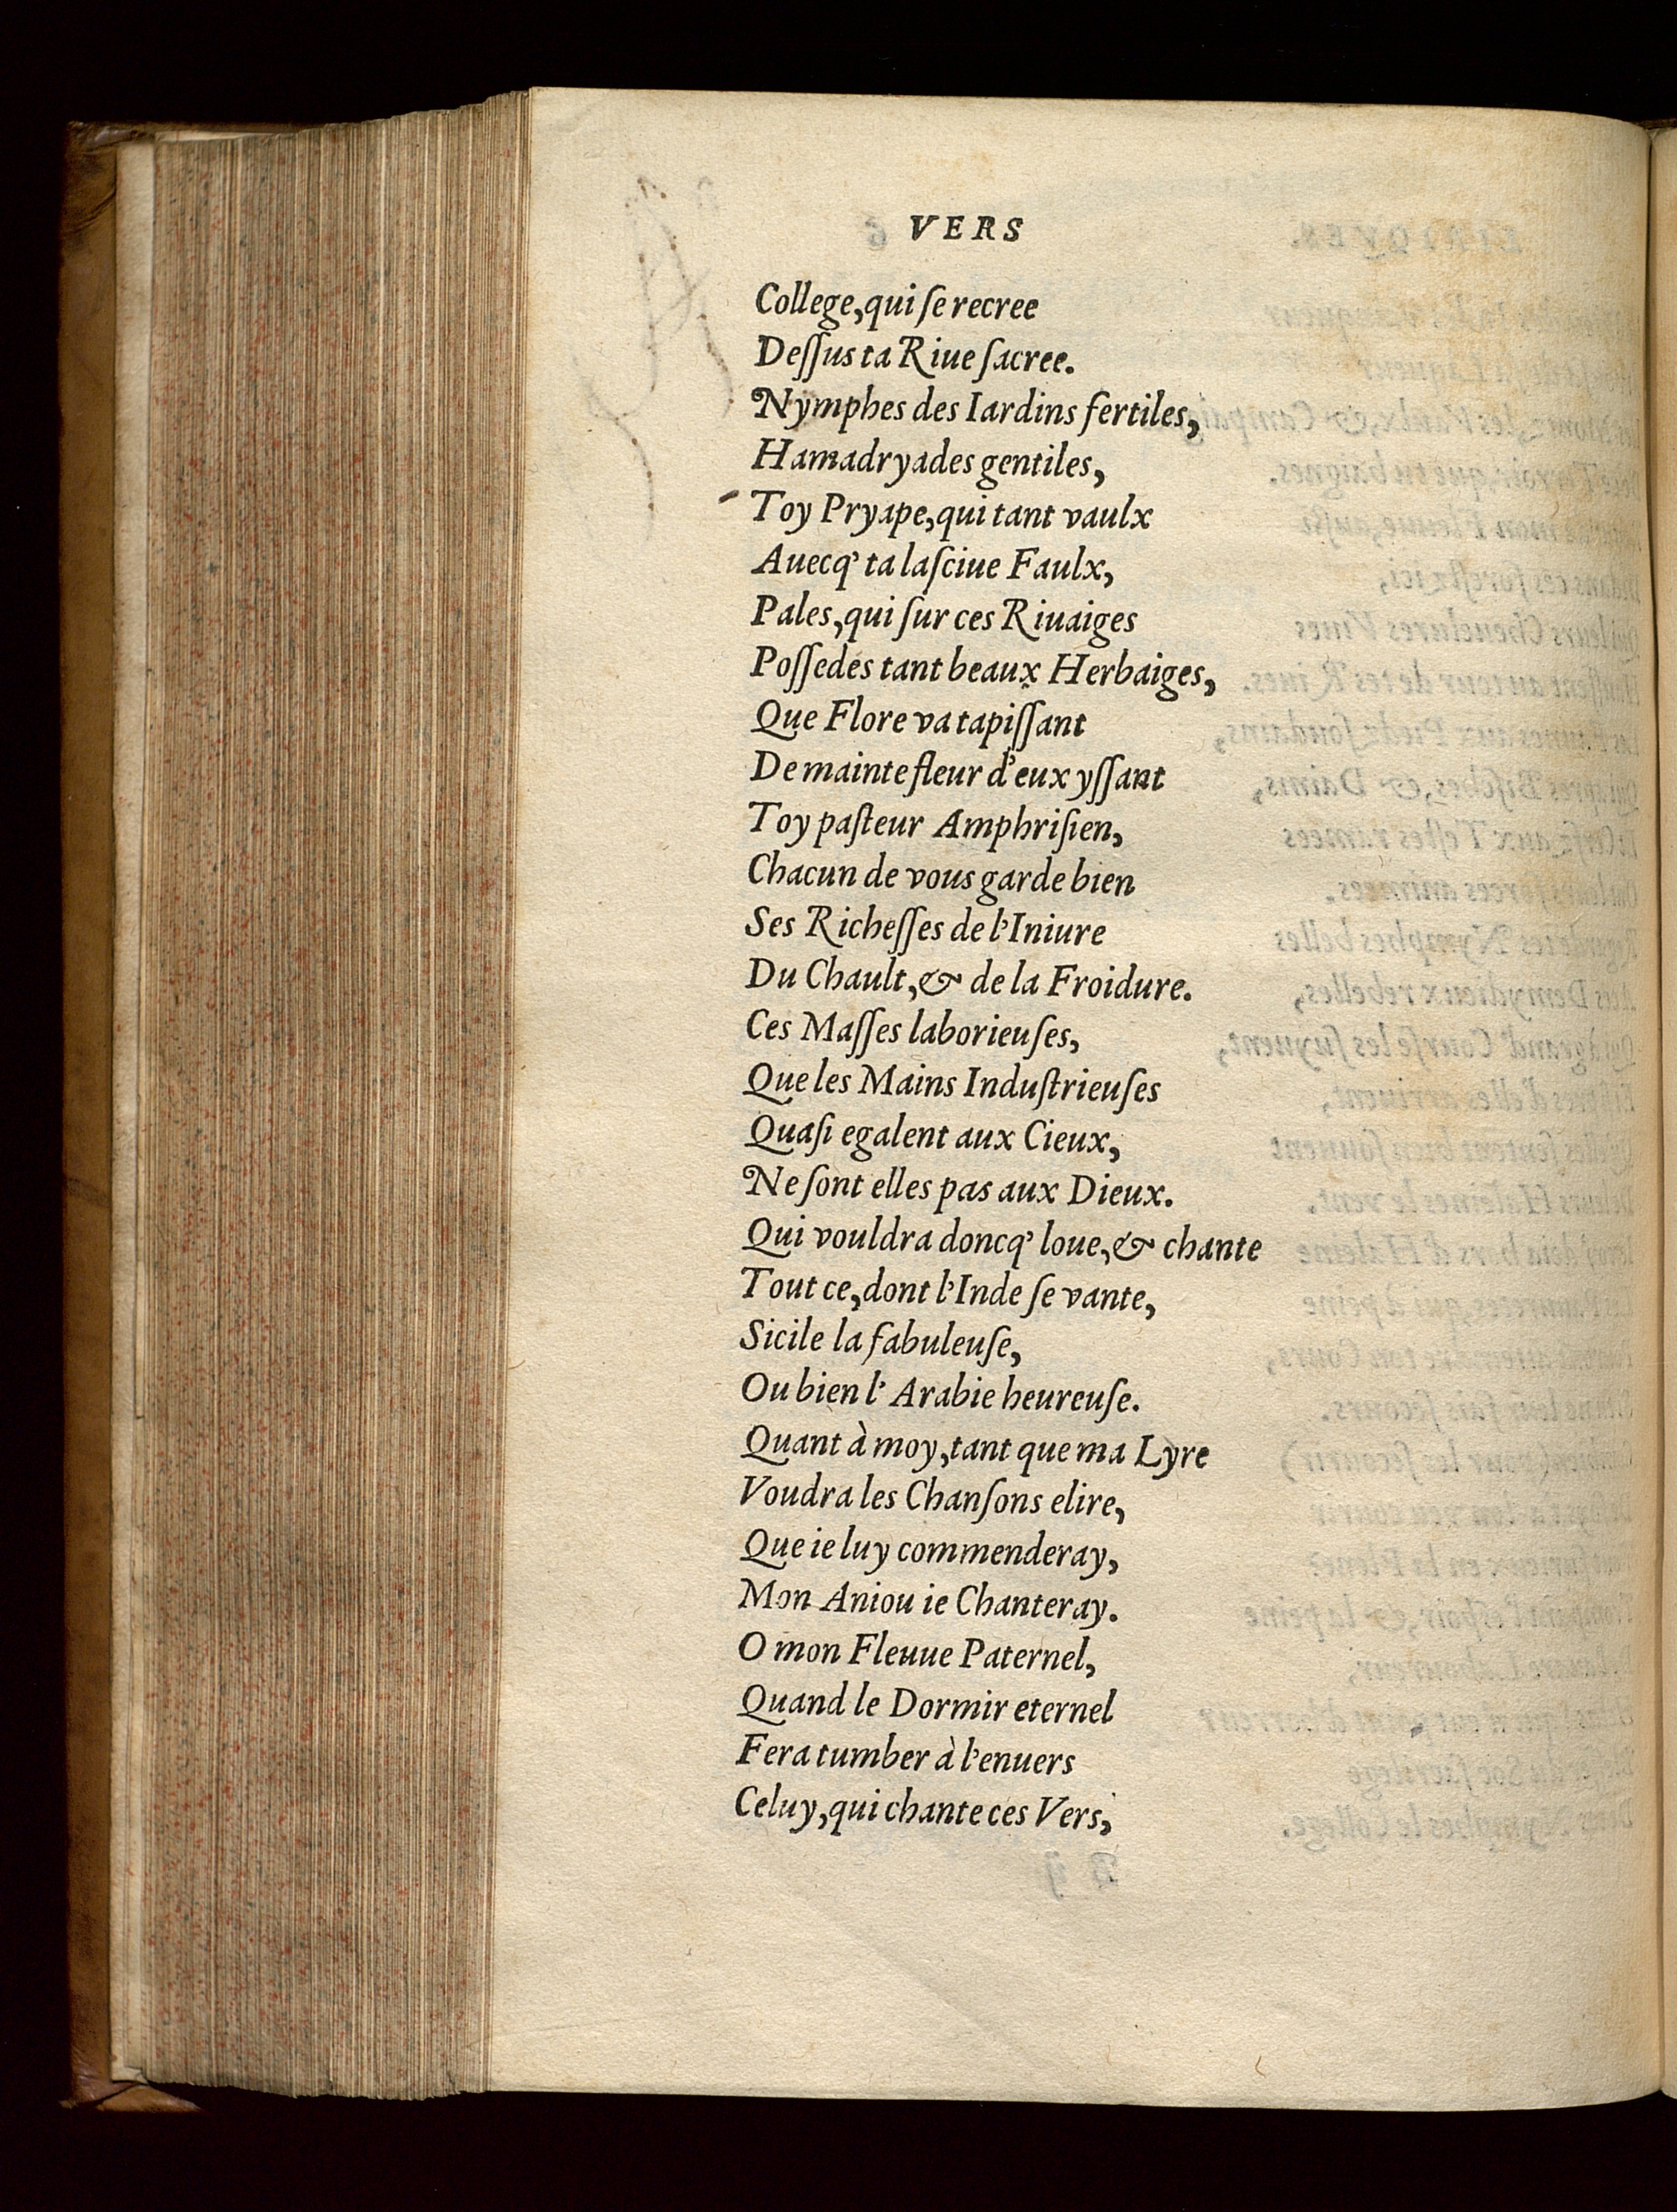 VERS
College, qui ſe recree
Deſſus ta Riue ſacree.
Nymphes des Iardins fertiles,
Hamadryades gentiles,
Toy Pryape, qui tant vaulx
Auecq' ta laſciue Faulx,
Pales, qui ſur ces Riuaiges
Poſſedes tant beaux Herbaiges,
Que Flore va tapiſſant
De mainte fleur d'eux yſſant
Toy paſteur Amphriſien,
Chacun de vous garde bien
Ses Richeſſes de l'Iniure
Du Chault, & de la Froidure.
Ces Maſſes laborieuſes,
Que les Mains Induſtrieuſes
Quaſi egalent aux Cieux,
Ne ſont elles pas aux Dieux.
Qui vouldra doncq' loue, & chante
Tout ce, dont l'Inde ſe vante,
Sicile la fabuleuſe,
Ou bien l'Arabie heureuſe.
Quant à moy, tant que ma Lyre
Voudra les Chanſons elire,
Que ie luy commenderay,
Mon Aniou ie Chanteray.
O mon Fleuue Paternel,
Quand le Dormir eternel
Fera tumber à l'enuers
Celuy, qui chante ces Vers,